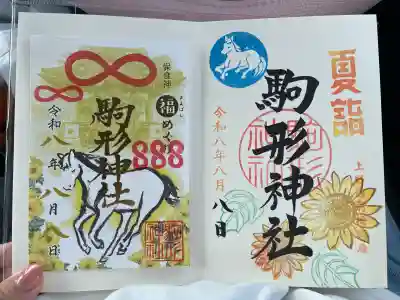 夏詣
駒形神社
令和八年八月八日
上
奥宮神
福めぐり
駒形神社
888
令和八年八月八日